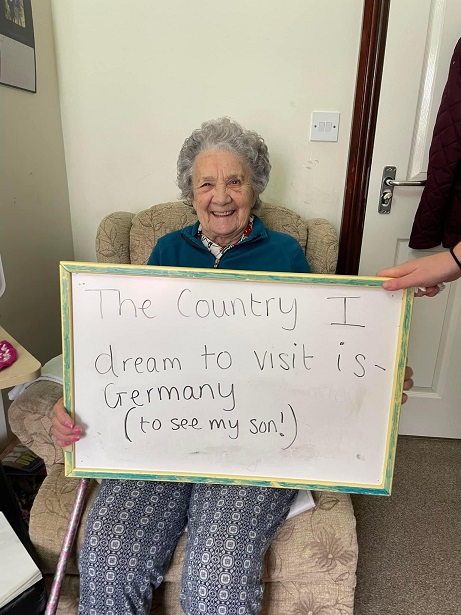 The Country I
dream to visit is-
Germany
(to see my son!)